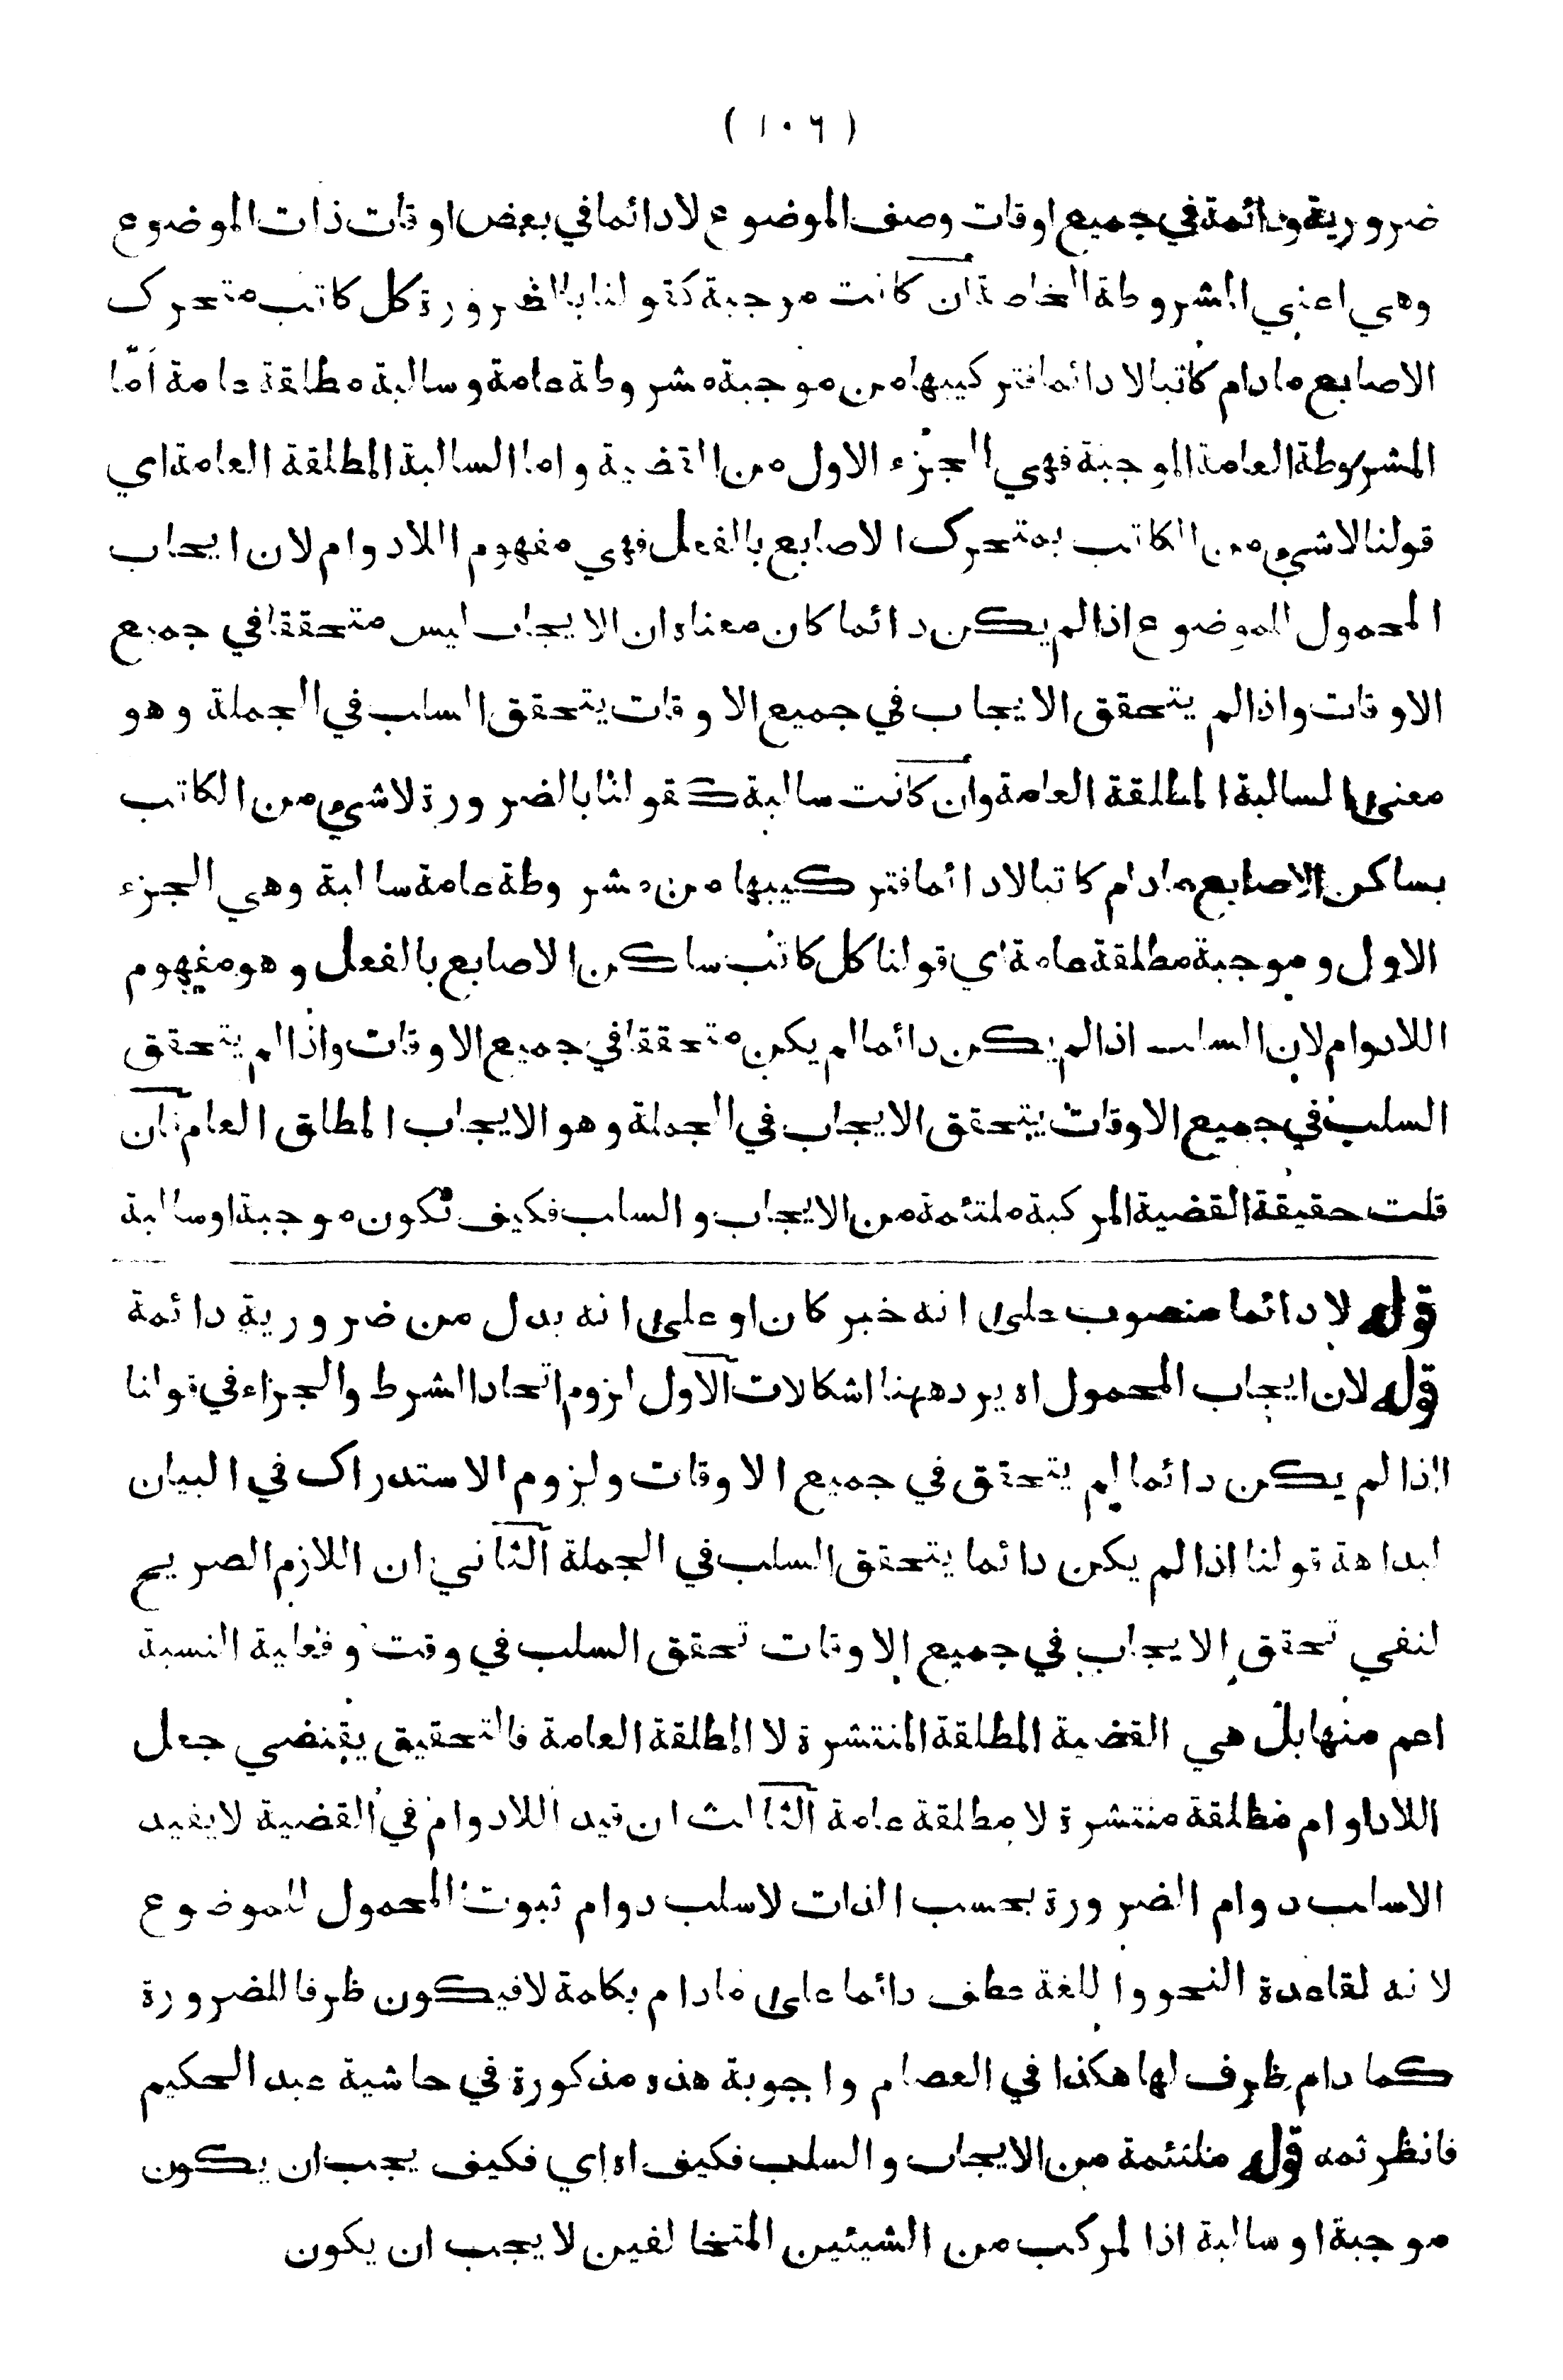 ( ١٠٦ )
ضرورية ودائمة في جميع اوقات وصف الموضوع لا دائما في بعض اوقات ذات الموضوع
وهي اعني المشروطة الخاصة ان كانت موجبة كقولنا بالضرورة كل كاتب متحرك
الاصابع مادام كاتبا لا دائما فتركيبها من موجبة مشروطة عامة وسالبة مطلقة عامة أمّا
المشروطة العامة الموجبة فهي الجزء الاول من القضية واما السالبة المطلقة العامة اي
قولنا لا شيء من الكاتب بمتحرك الاصابع بالفعل فهي مفهوم اللادوام لان ايجاب
المحمول للموضوع اذا لم يكن دائما كان معناه ان الايجاب ليس متحققا في جميع
الاوقات واذا لم يتحقق الايجاب في جميع الاوقات يتحقق السلب في الجملة وهو
معنى السالبة المطلقة العامة وان كانت سالبة كقولنا بالضرورة لا شيء من الكاتب
بساكن الاصابع مادام كاتبا لا دائما فتركيبها من مشروطة عامة سالبة وهي الجزء
الاول وموجبة مطلقة عامة اي قولنا كل كاتب ساكن الاصابع بالفعل وهو مفهوم
اللادوام لان السلب اذا لم يكن دائما لم يكن متحققا في جميع الاوقات واذا لم يتحقق
السلب في جميع الاوقات يتحقق الايجاب في الجملة وهو الايجاب المطلق العام فان
قلت حقيقة القضية المركبة ملتئمة من الايجاب والسلب فكيف تكون موجبة او سالبة
قوله لا دائما منصوب على انه خبر كان او على انه بدل من ضرورية دائمة
قوله لان ايجاب المحمول اه يرد ههنا اشكالات الاول لزوم اتحاد الشرط والجزاء في قولنا
اذا لم يكن دائما لم يتحقق في جميع الاوقات ولزوم الاستدراك في البيان
لبداهة قولنا اذا لم يكن دائما يتحقق السلب في الجملة الثاني ان اللازم الصريح
لنفي تحقق الايجاب في جميع الاوقات تحقق السلب في وقت وفعلية النسبة
اعم منها بل هي القضية المطلقة المنتشرة لا المطلقة العامة فالتحقيق يقتضي جعل
اللادوام مطلقة منتشرة لا مطلقة عامة الثالث ان قيد اللادوام في القضية لا يفيد
الا سلب دوام الضرورة بحسب الذات لا سلب دوام ثبوت المحمول للموضوع
لانه لقاعدة النحو واللغة عطف دائما على مادام بكلمة لا فيكون ظرفا للضرورة
كما دام ظرف لها هكذا في العصام واجوبة هذه مذكورة في حاشية عبد الحكيم
فانظر ثمه قوله ملتئمة من الايجاب والسلب فكيف اه اي فكيف يجب ان يكون
موجبة او سالبة اذا لمركب من الشيئين المتخالفين لا يجب ان يكون